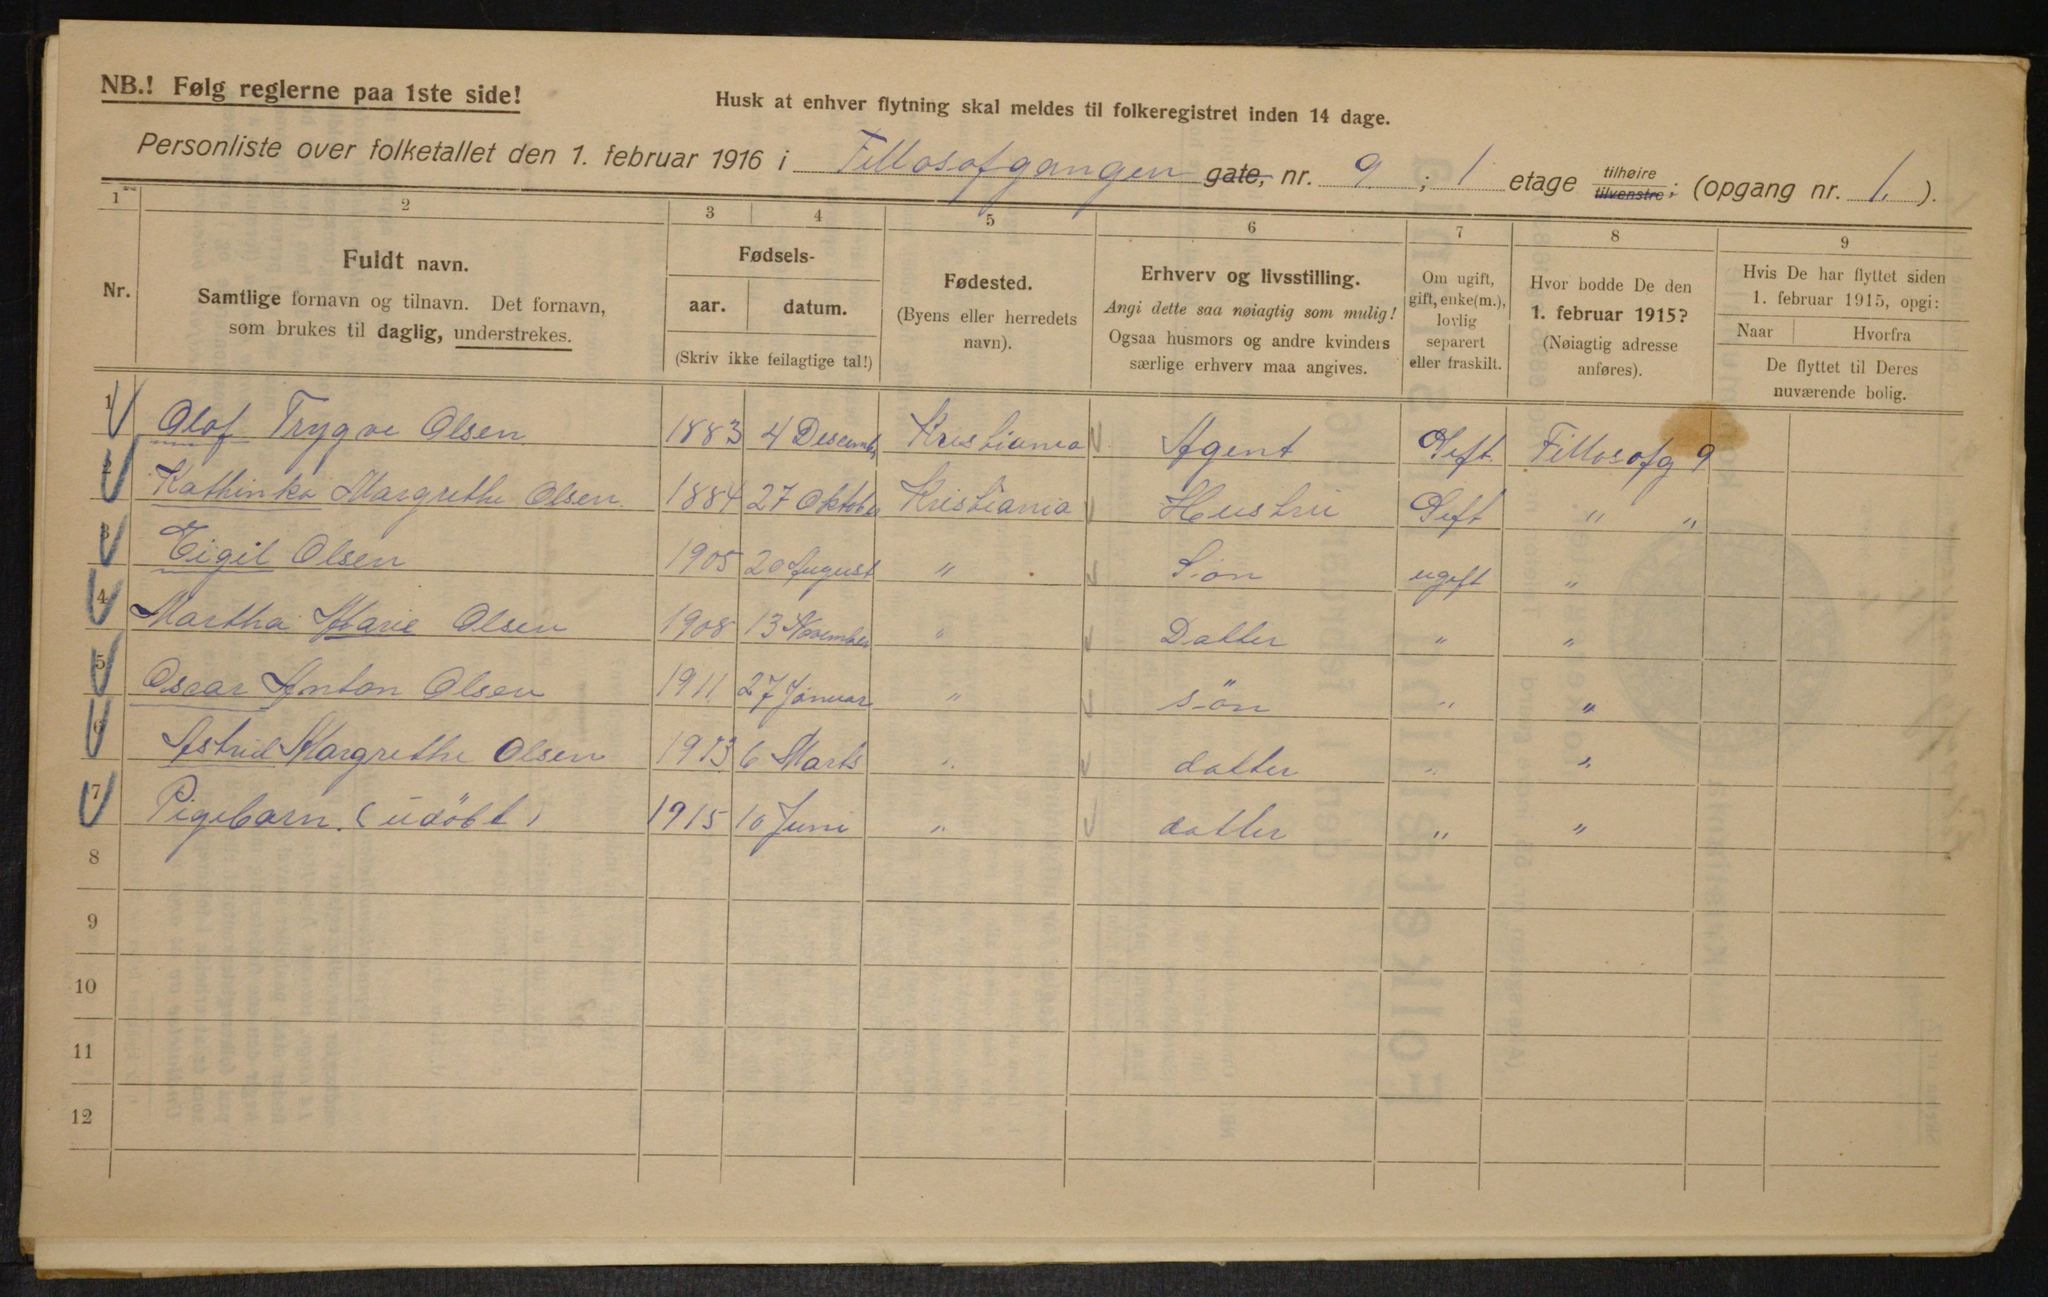 NB.! Følg reglerne paa 1ste side!
Husk at enhver flytning skal meldes til folkeregistret inden 14 dage.
Personliste over folketallet den 1. februar 1916 i Fillosofgangen gate, nr. 9 ; 1 etage tilhøire tilvenstre; (opgang nr. 1. ).
1 2 3 4 5 6 7 8 9
Nr.
Fuldt navn.
Samtlige fornavn og tilnavn. Det fornavn,
som brukes til daglig, understrekes.
Fødsels-
aar. datum.
(Skriv ikke feilagtige tal!)
Fødested.
(Byens eller herredets
navn).
Erhverv og livsstilling.
Angi dette saa nøiagtig som mulig!
Ogsaa husmors og andre kvinders
særlige erhverv maa angives.
Om ugift,
gift, enke(m.),
lovlig
separert
eller fraskilt.
Hvor bodde De den
1. februar 1915?
(Nøiagtig adresse
anføres).
Hvis De har flyttet siden
1. februar 1915, opgi:
Naar Hvorfra
De flyttet til Deres
nuværende bolig.
1 Olaf Trygve Olsen 1883 4 Desember Kristiania Agent Gift. Fillosofg 9
2 Kathinka Margrethe Olsen. 1884 27 Oktober Kristiania Hustru Gift " "
3 Eigil Olsen 1905 20 August " Søn ugift "
4 Martha Marie Olsen 1908 13 November " Datter " "
5 Oscar Anton Olsen 1911 27 Januar " søn " "
6 Astrid Margrethe Olsen 1913 6 Marts " datter " "
7 Pigebarn. (udöbt) 1915 10 Juni " datter " "
8
9
10
11
12